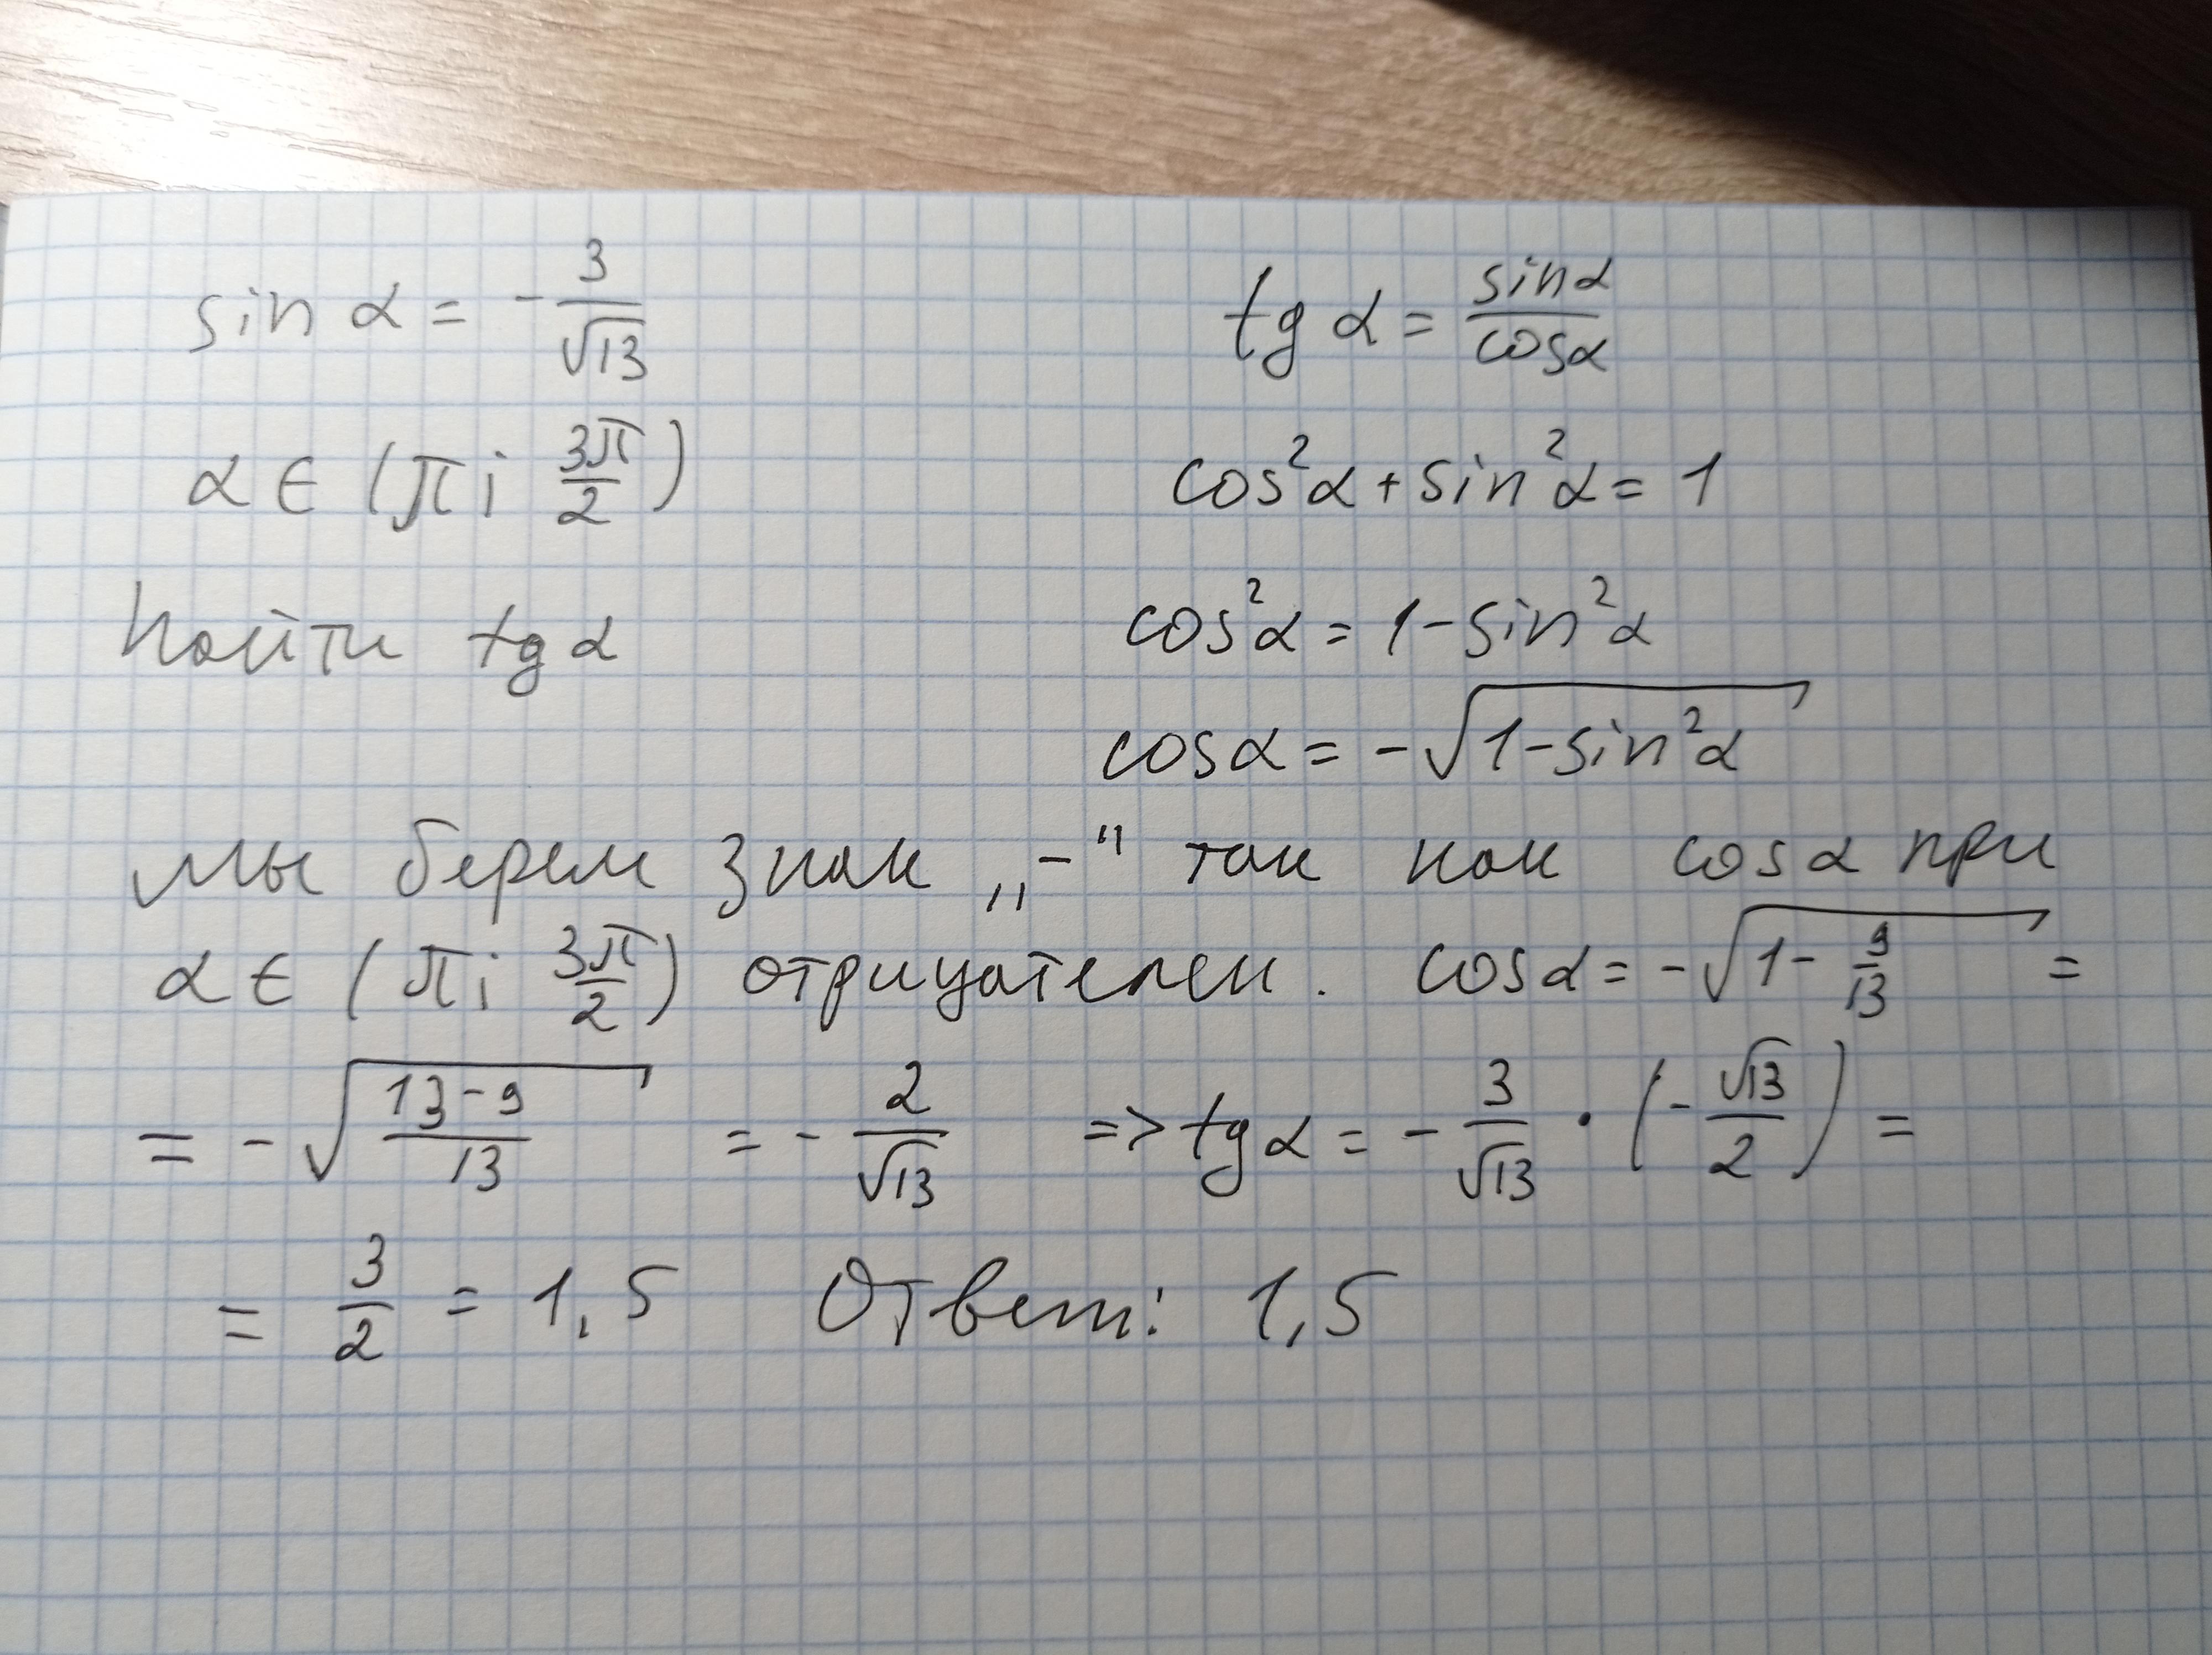 sin α = - 3/√13
α ∈ (π; 3π/2)
Найти tg α
tg α = sin α/cos α
cos²α + sin²α = 1
cos²α = 1 - sin²α
cos α = -√(1 - sin²α)
Мы берем знак „-“ так как cos α при
α ∈ (π; 3π/2) отрицателен. cos α = -√(1 - 9/13) =
= -√((13-9)/13) = - 2/√13 => tg α = - 3/√13 · (- √13/2) =
= 3/2 = 1,5 Ответ: 1,5